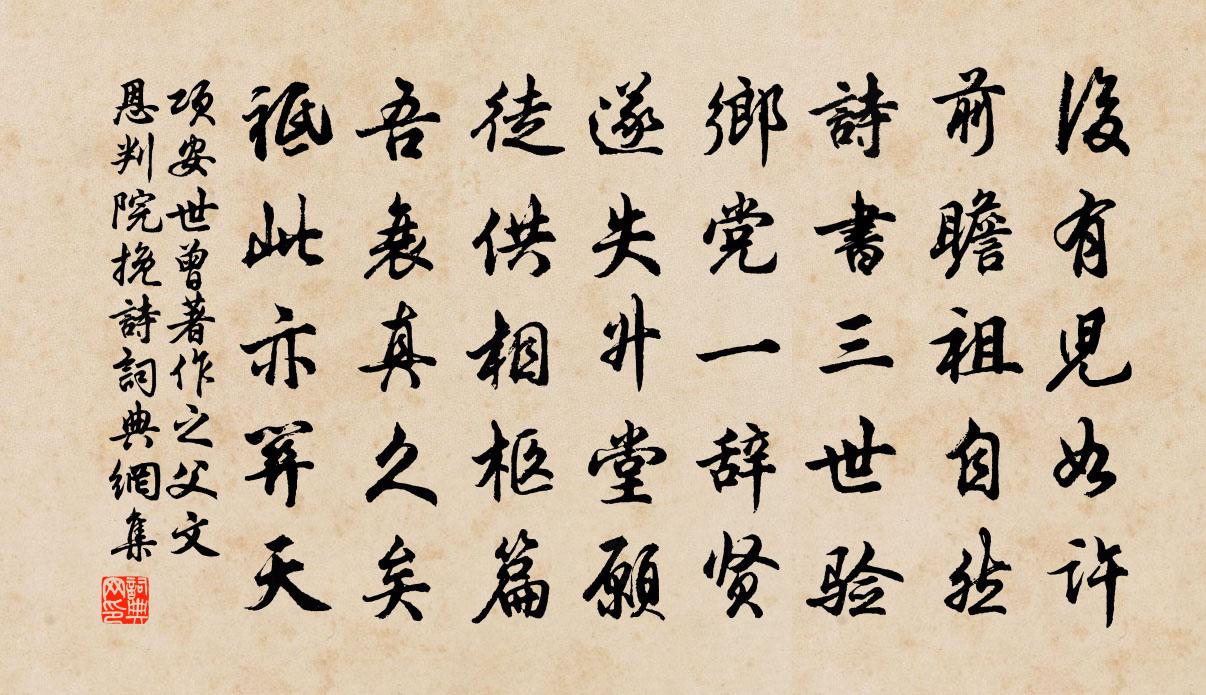 後有児如許
前瞻祖自然
詩書三世验
鄉党一辞贤
遂失升堂願
徒供相柩篇
吾衰真久矣
祗此亦箅天
項安世曾著作之父文
恩判院挽詩詞典網集
詞典網印